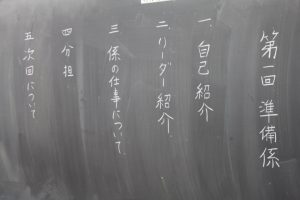 第一回 準備係
一、自己紹介
二、リーダー紹介
三 係の仕事について
四 分担
五 次回について